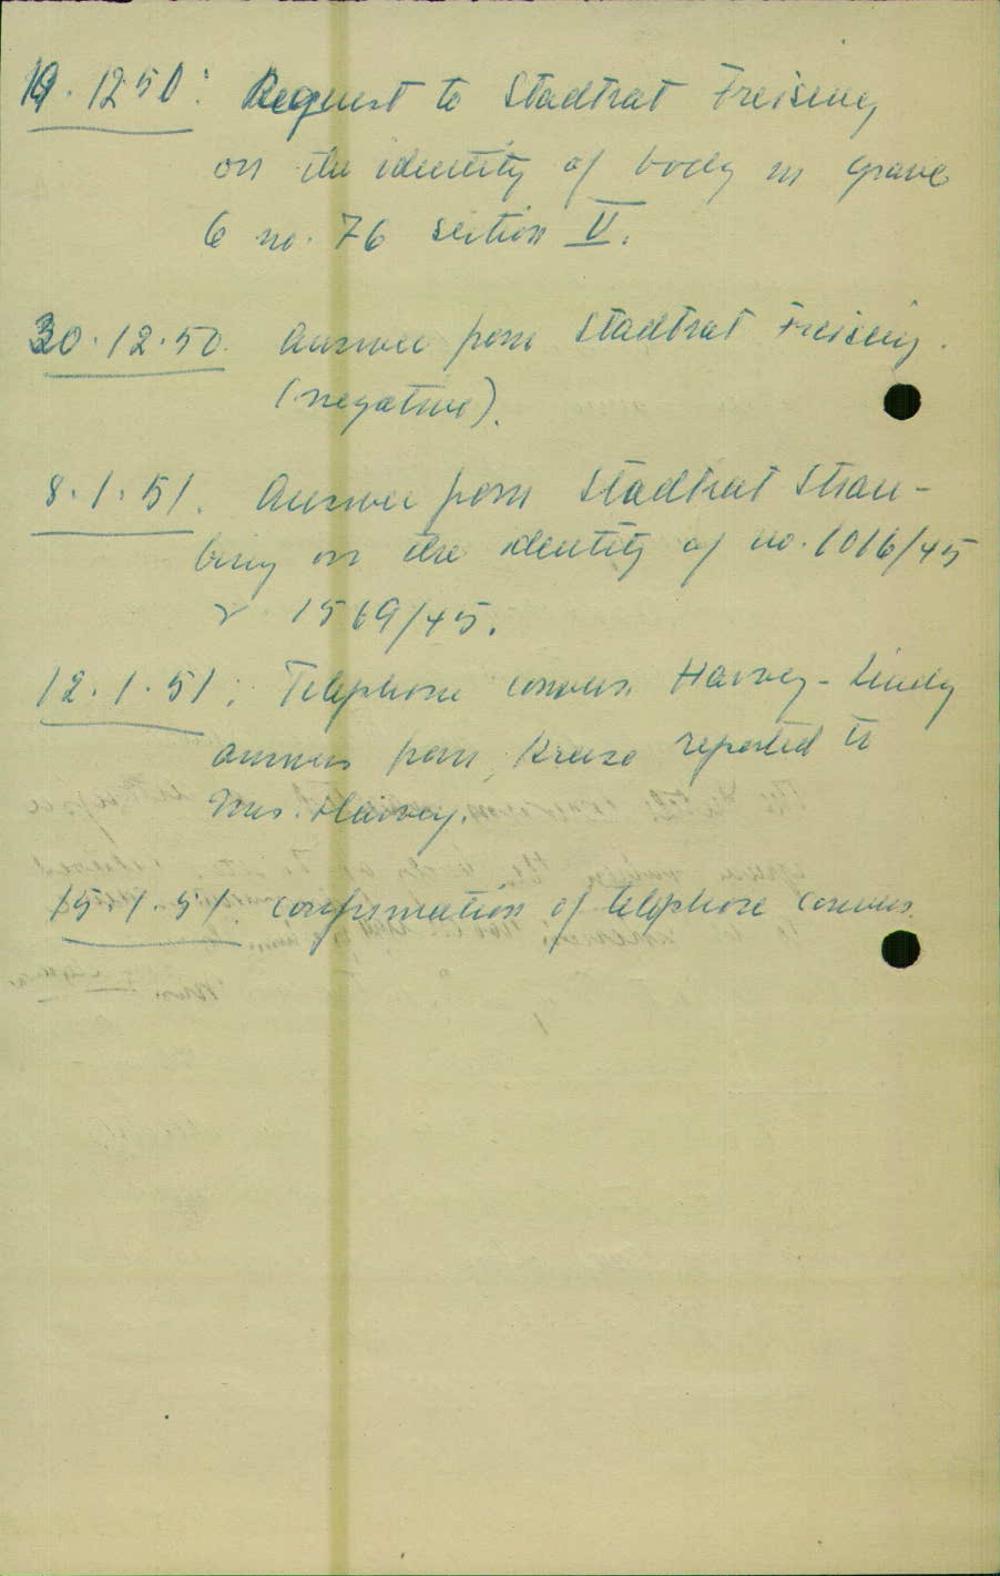 19.12.50: Request to Stadtrat Freising
on the identity of body in grave
6 no. 76 section V.
30.12.50. Answer from Stadtrat Freising.
(negative).
8.1.51. Answer from Stadtrat Strau-
bing on the identity of no. 1016/45
1569/45.
12.1.51: Telephone convers. Harvey - Lindy
answer from Kreise reported to
Mrs. Harvey.
15.1.51 confirmation of telephone convers.